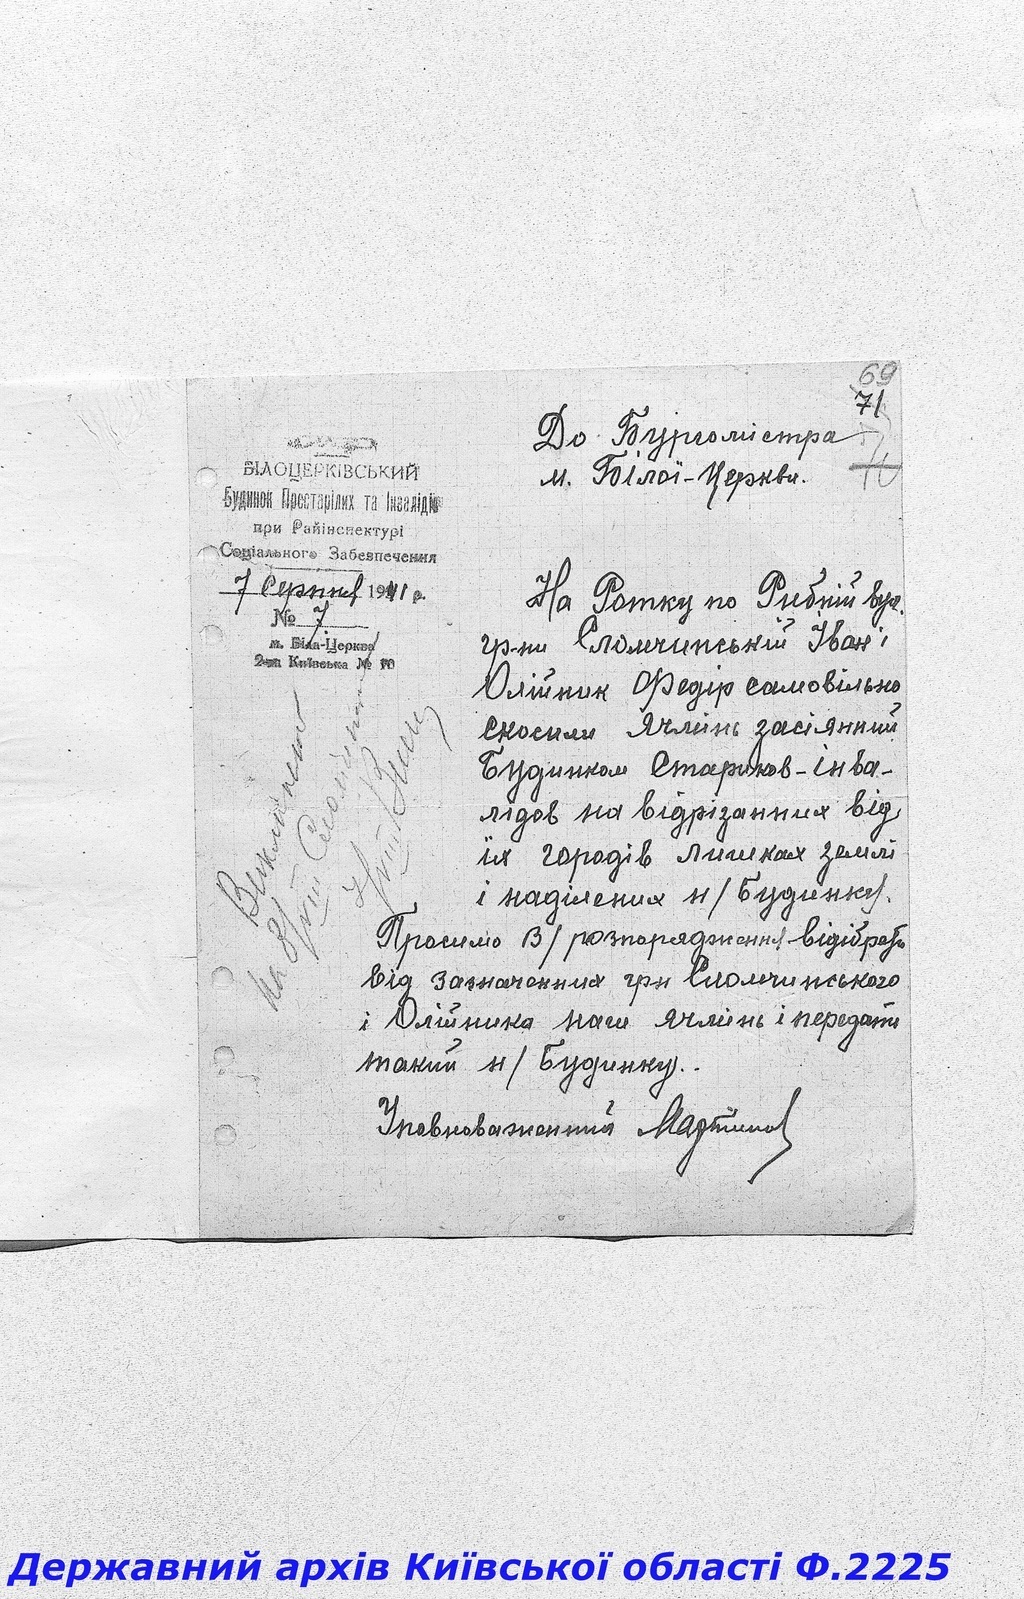 69
71
До Бургомістра
м. Білої-Церкви.
БІЛОЦЕРКІВСЬКИЙ
Будинок Престарілих та Інвалідів
при Райінспектурі
Соціального Забезпечення
7 Серпня 1941 р.
№ 7
м. Біла-Церква
2-га Київська № 10
На Ротку по Рибній вул.
гр-ни Сломчинський Іван і
Олійник Федір самовільно
скосили ячмінь засіянний
Будинком Стариков-інва-
лідов на відрізанних від
їх городів лишках землі
і наділених н/Будинку.
Просимо В/розпорядження відібрати
від зазначенних грн Сломчинського
і Олійника наш ячмінь і передати
такий н/Будинку.
Уповноваженний Мартинов
Викликати
на 8/VIII
Державний архів Київської області Ф.2225